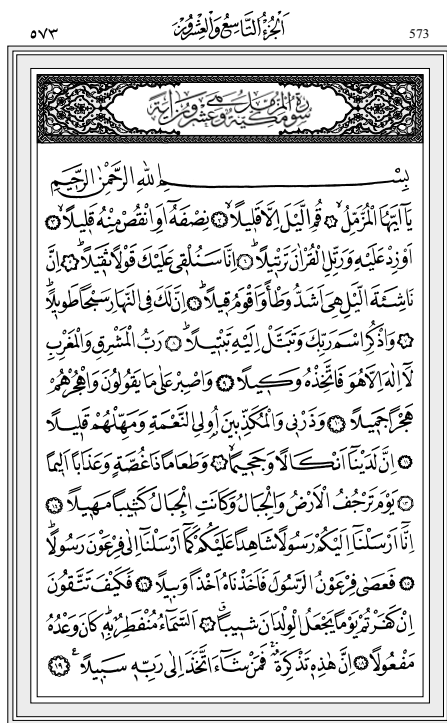 ٥٧٣ اَلْجُزْءُ التَّاسِعُ وَالْعِشْرُونَ 573
سُورَةُ الْمُزَّمِّلِ مَكِّيَّةٌ وَهِيَ عِشْرُونَ اٰيَةً
بِسْمِ اللهِ الرَّحْمٰنِ الرَّحِيمِ
يَٓا اَيُّهَا الْمُزَّمِّلُۙ ﴿١﴾ قُمِ الَّيْلَ اِلَّا قَلِيلًاۙ ﴿٢﴾ نِصْفَهُٓ اَوِ انْقُصْ مِنْهُ قَلِيلًاۙ ﴿٣﴾
اَوْ زِدْ عَلَيْهِ وَرَتِّلِ الْقُرْاٰنَ تَرْتِيلًاۜ ﴿٤﴾ اِنَّا سَنُلْقِى عَلَيْكَ قَوْلًا ثَقِيلًاۜ ﴿٥﴾ اِنَّ
نَاشِئَةَ الَّيْلِ هِىَ اَشَدُّ وَطْـًٔا وَاَقْوَمُ قِيلًاۜ ﴿٦﴾ اِنَّ لَكَ فِى النَّهَارِ سَبْحًا طَوِيلًاۜ
﴿٧﴾ وَاذْكُرِ اسْمَ رَبِّكَ وَتَبَتَّلْ اِلَيْهِ تَبْتِيلًاۜ ﴿٨﴾ رَبُّ الْمَشْرِقِ وَالْمَغْرِبِ
لَٓا اِلٰهَ اِلَّا هُوَ فَاتَّخِذْهُ وَكِيلًا ﴿٩﴾ وَاصْبِرْ عَلٰى مَا يَقُولُونَ وَاهْجُرْهُمْ
هَجْرًا جَمِيلًا ﴿١٠﴾ وَذَرْنِى وَالْمُكَذِّبِينَ اُولِى النَّعْمَةِ وَمَهِّلْهُمْ قَلِيلًا
﴿١١﴾ اِنَّ لَدَيْنَٓا اَنْكَالًا وَجَحِيمًاۙ ﴿١٢﴾ وَطَعَامًا ذَا غُصَّةٍ وَعَذَابًا اَلِيمًا
﴿١٣﴾ يَوْمَ تَرْجُفُ الْاَرْضُ وَالْجِبَالُ وَكَانَتِ الْجِبَالُ كَثِيبًا مَهِيلًا ﴿١٤﴾
اِنَّٓا اَرْسَلْنَٓا اِلَيْكُمْ رَسُولًا شَاهِدًا عَلَيْكُمْ كَمَٓا اَرْسَلْنَٓا اِلٰى فِرْعَوْنَ رَسُولًاۜ
﴿١٥﴾ فَعَصٰى فِرْعَوْنُ الرَّسُولَ فَاَخَذْنَاهُ اَخْذًا وَبِيلًا ﴿١٦﴾ فَكَيْفَ تَتَّقُونَ
اِنْ كَفَرْتُمْ يَوْمًا يَجْعَلُ الْوِلْدَانَ شِيبًاۗ ﴿١٧﴾ اَلسَّمَٓاءُ مُنْفَطِرٌ بِهِۜ كَانَ وَعْدُهُ
مَفْعُولًا ﴿١٨﴾ اِنَّ هٰذِهِ تَذْكِرَةٌۚ فَمَنْ شَٓاءَ اتَّخَذَ اِلٰى رَبِّهِ سَبِيلًا۟ ﴿١٩﴾